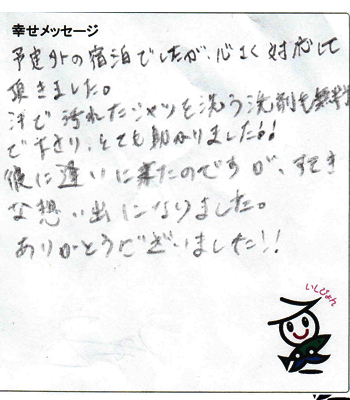 幸せメッセージ
予定外の宿泊でしたが、心よく対応して
頂きました。
汗で汚れたシャツを洗う洗剤も無料
で下さり、とても助かりました!!
彼に逢いに来たのですが、すてき
な想い出になりました。
ありがとうございました!!
いしぴょん